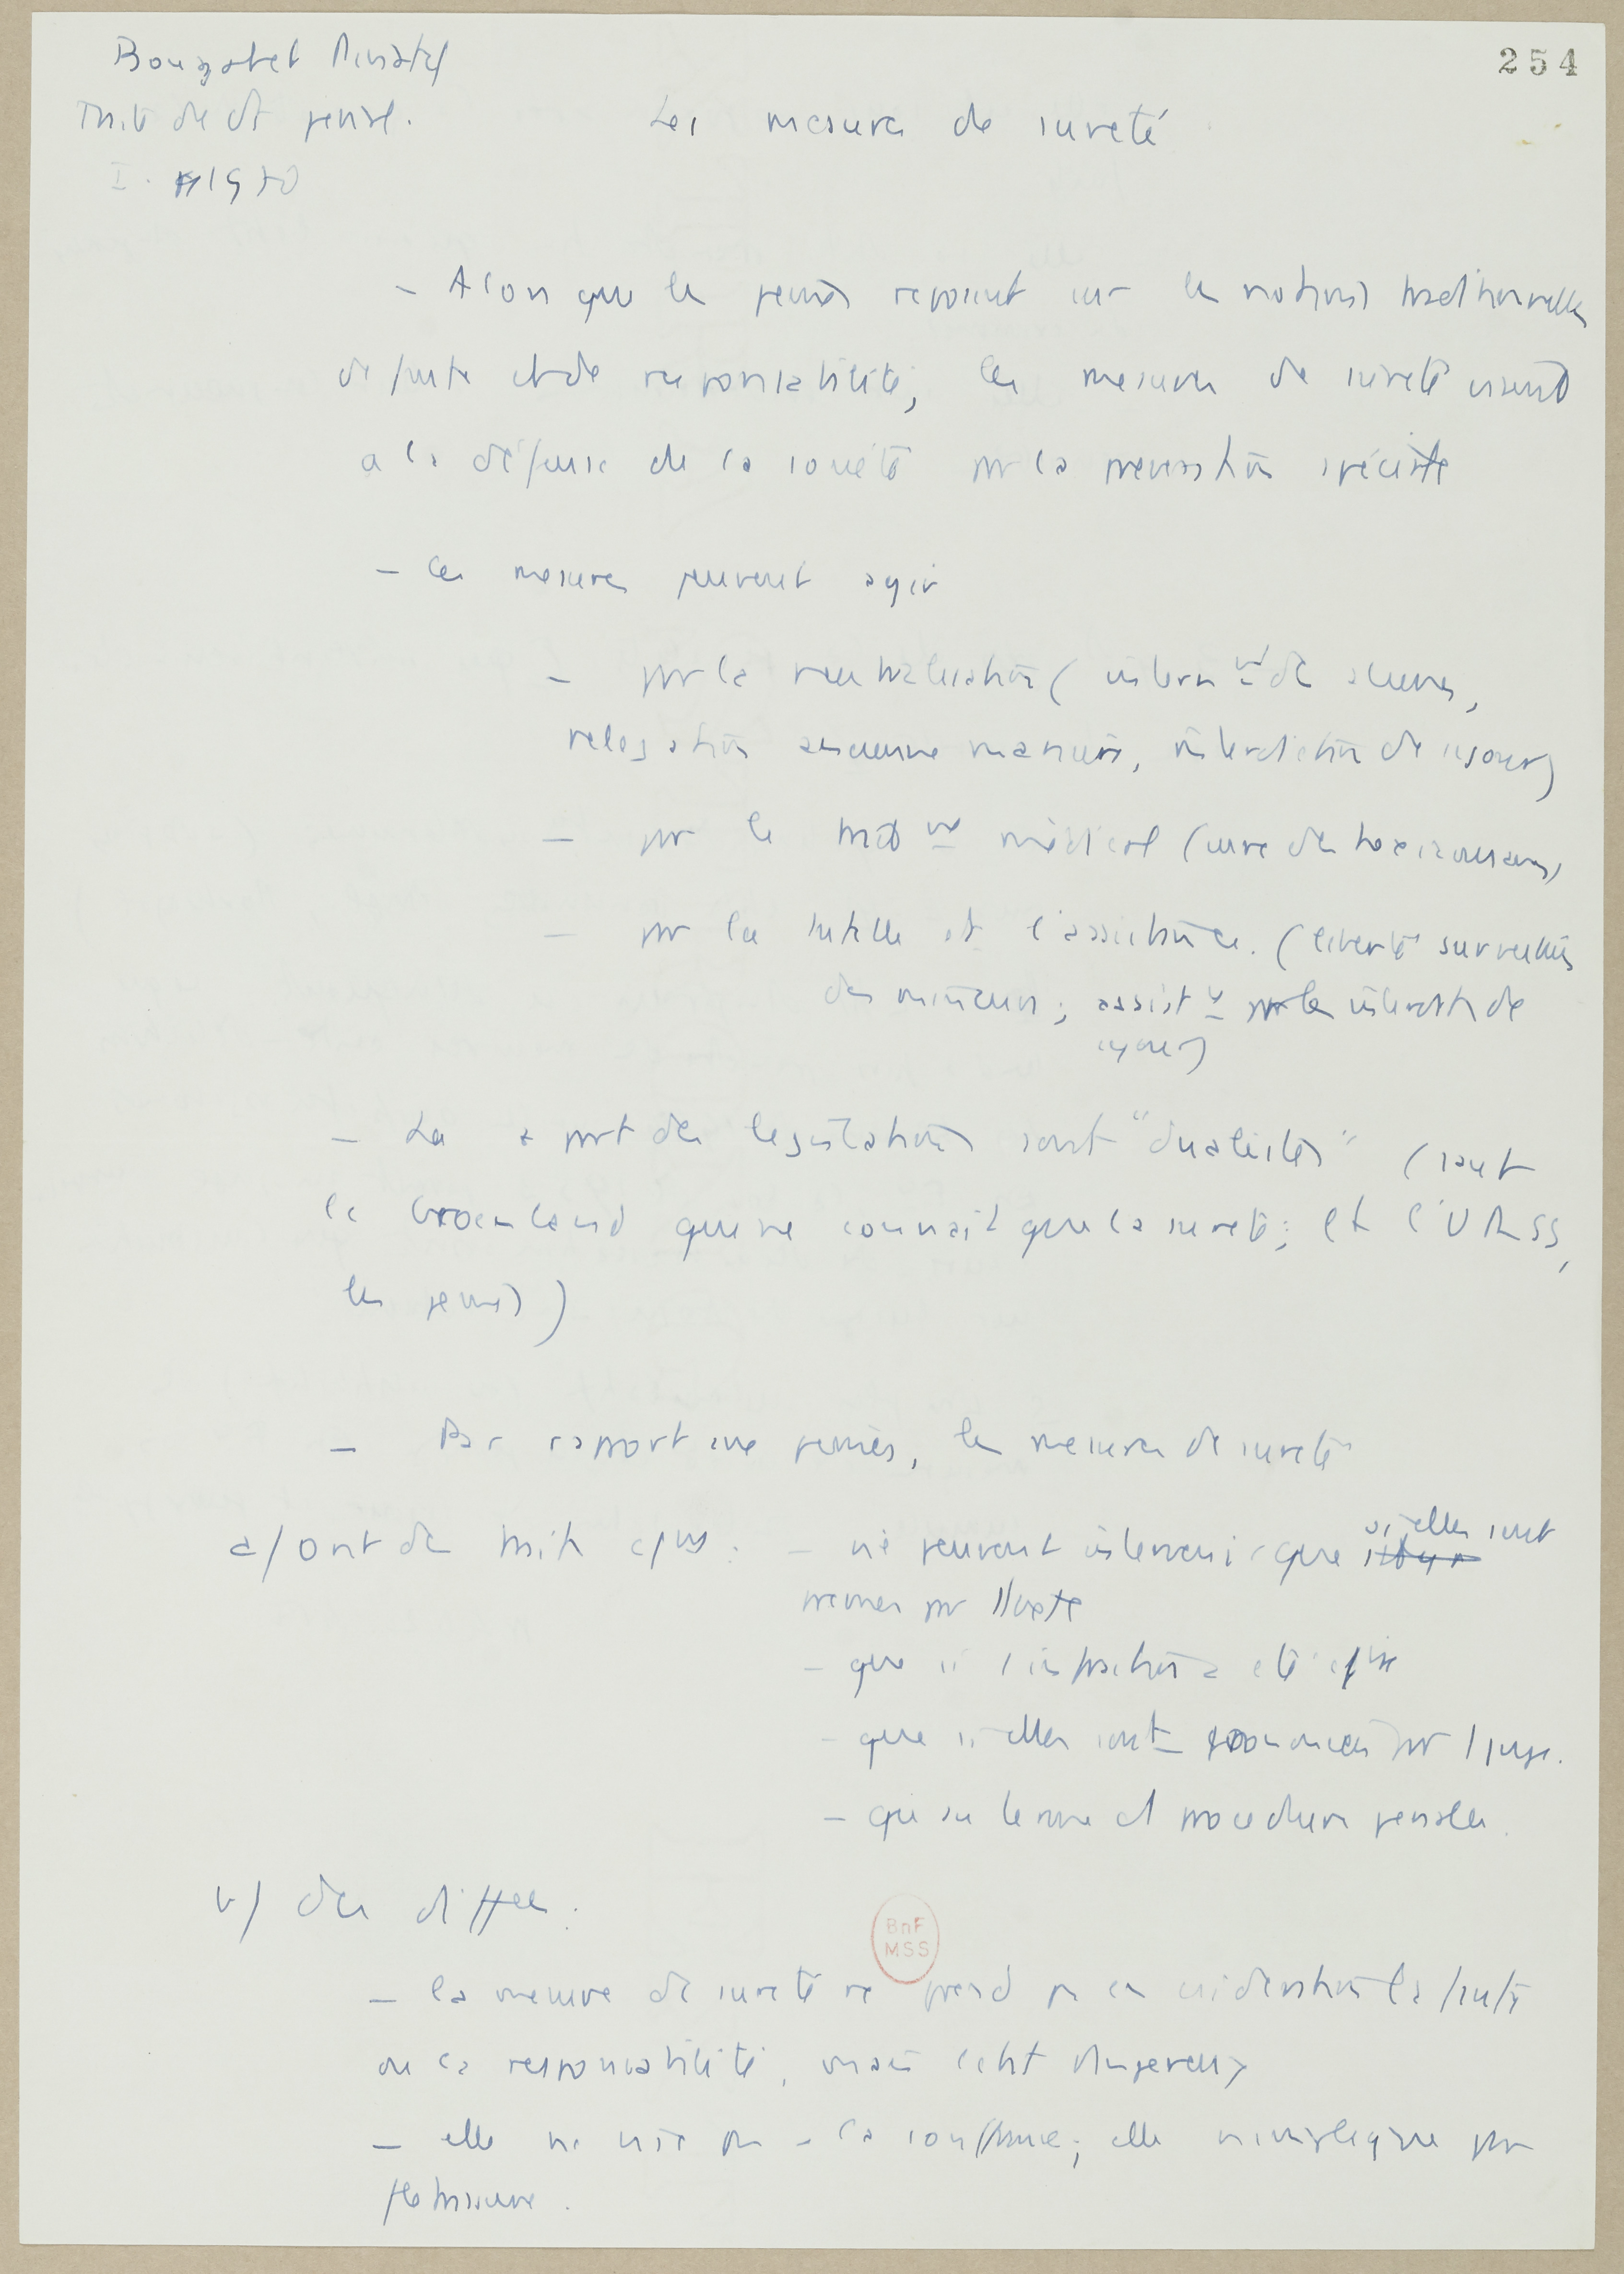 254
Bouzat et Pinatel
Traité de dt pénal.
I. 1970
Les mesures de sureté
- Alors que les peines reposent sur les notions traditionnelles
de faute et de responsabilité, les mesures de sureté visent
a la défense de la société par la prevention spéciale
- Ces mesures peuvent agir
- par la neutralisation (intern nt de alienes,
relegation ancienne maniere, interdiction de sejour)
- par le trait nt médical (cure des toxicomanes)
- par la tutelle et l'assistance. (liberté surveillée
des mineurs; assist ce par les interdits de
sejour)
- La + part des legislations sont "dualistes" (sauf
le Groenland qui ne connait que la sureté; et l'URSS,
les peines)
- Par rapport aux peines, les mesures de sureté
a/ ont des traits c/ns: - ne peuvent intervenir que si elles sont
prevues par l/texte
- que si l'infraction a été c/ise
- que si elles sont prononcées par l juge.
- qu'au terme d procedure penale.
b/ des diffces:
- la mesure de sureté ne prend pas en consideration la faute
ou la responsabilité, mais l'etat dangereux
- elle ne vise pas a la souffrance; elle n'implique pas
fletrissure.
BnF
MSS